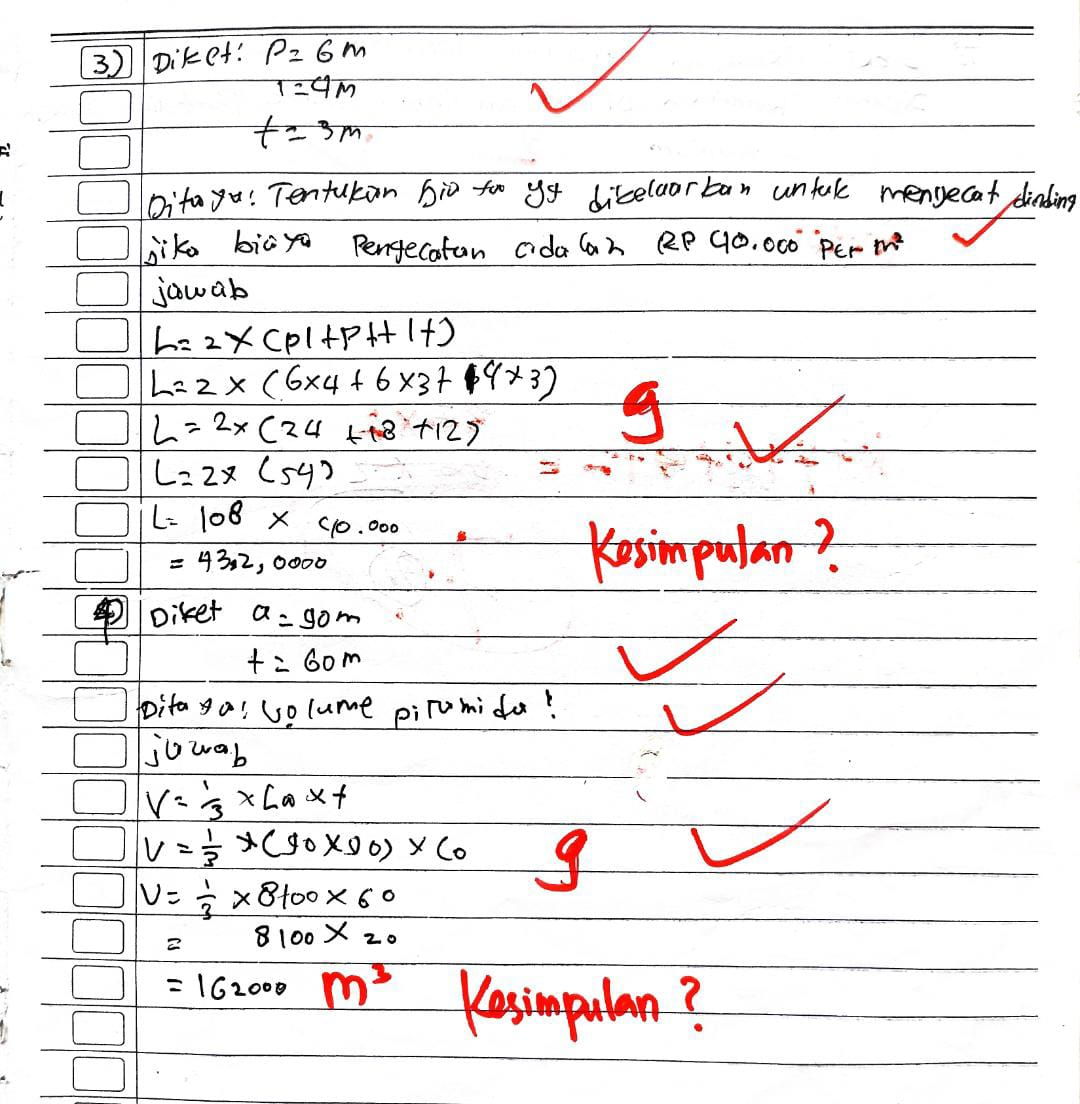 3) Diket: P= 6 m
l = 4 m
t = 3 m.
Ditaya: Tentukan yg dikelaarkan untuk mengecat dinding
jika biaya Pengecatan adalah RP 40.000 Per m²
jawab
L= 2 X (pl+pt+lt)
L= 2 x (6x4 + 6 x3+ 4x3)
L = 2x (24 +18 +12)
9
L= 2x (54)
L= 108 x 40.000
Kesimpulan ?
= 43,2,0000
4) Diket a = 90 m
t = 60 m
Ditaya: volume piramida !
jawab
V= 1/3 x La x t
V = 1/3 x (90 x 90) x 60
9
V= 1/3 x 8100 x 60
= 8100 X 20
= 162000 m³ Kesimpulan ?